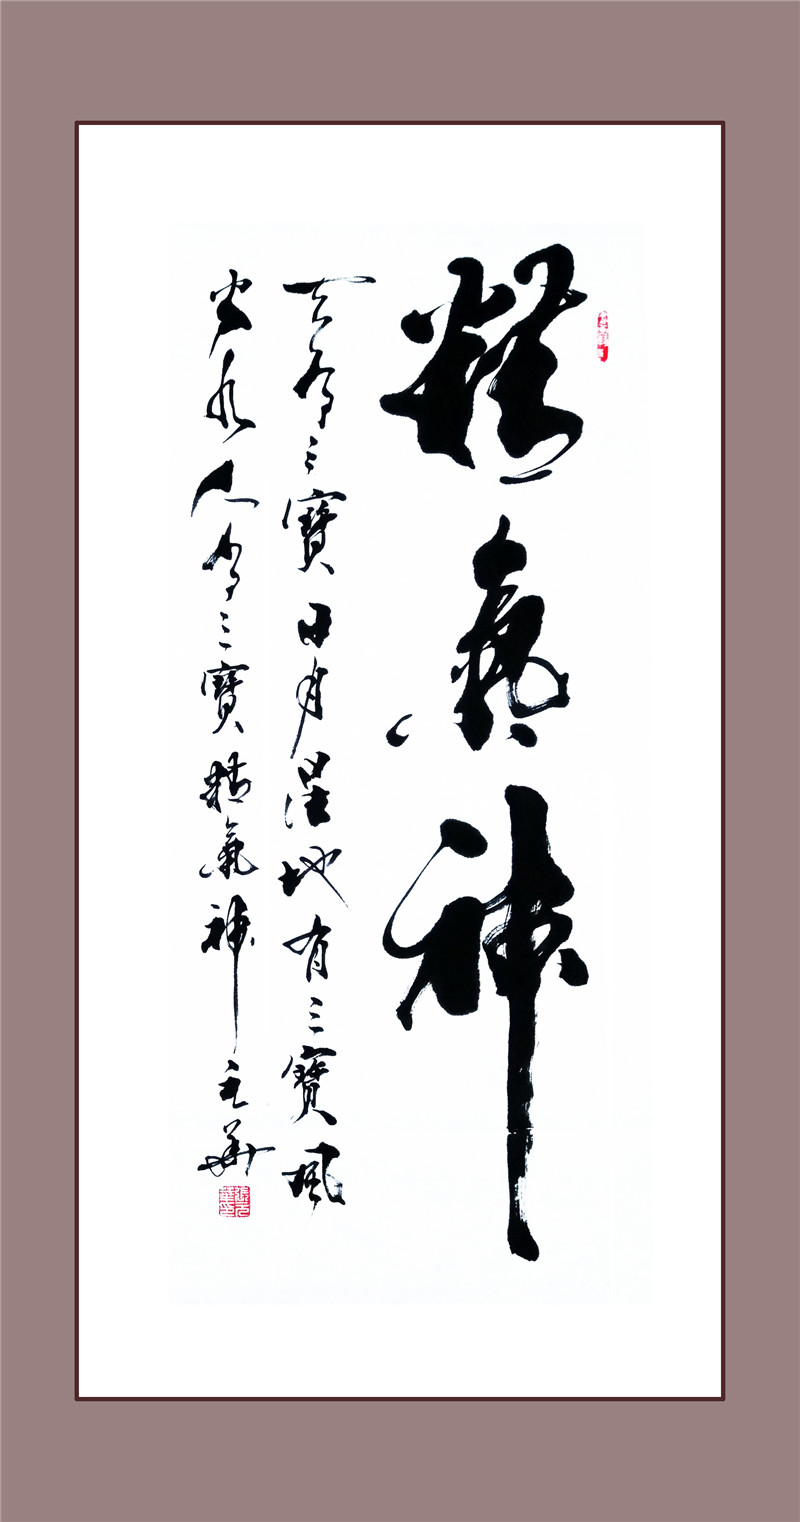 精氣神
天有三寶日月星地有三寶風
水人有三寶精氣神元華
張元華印